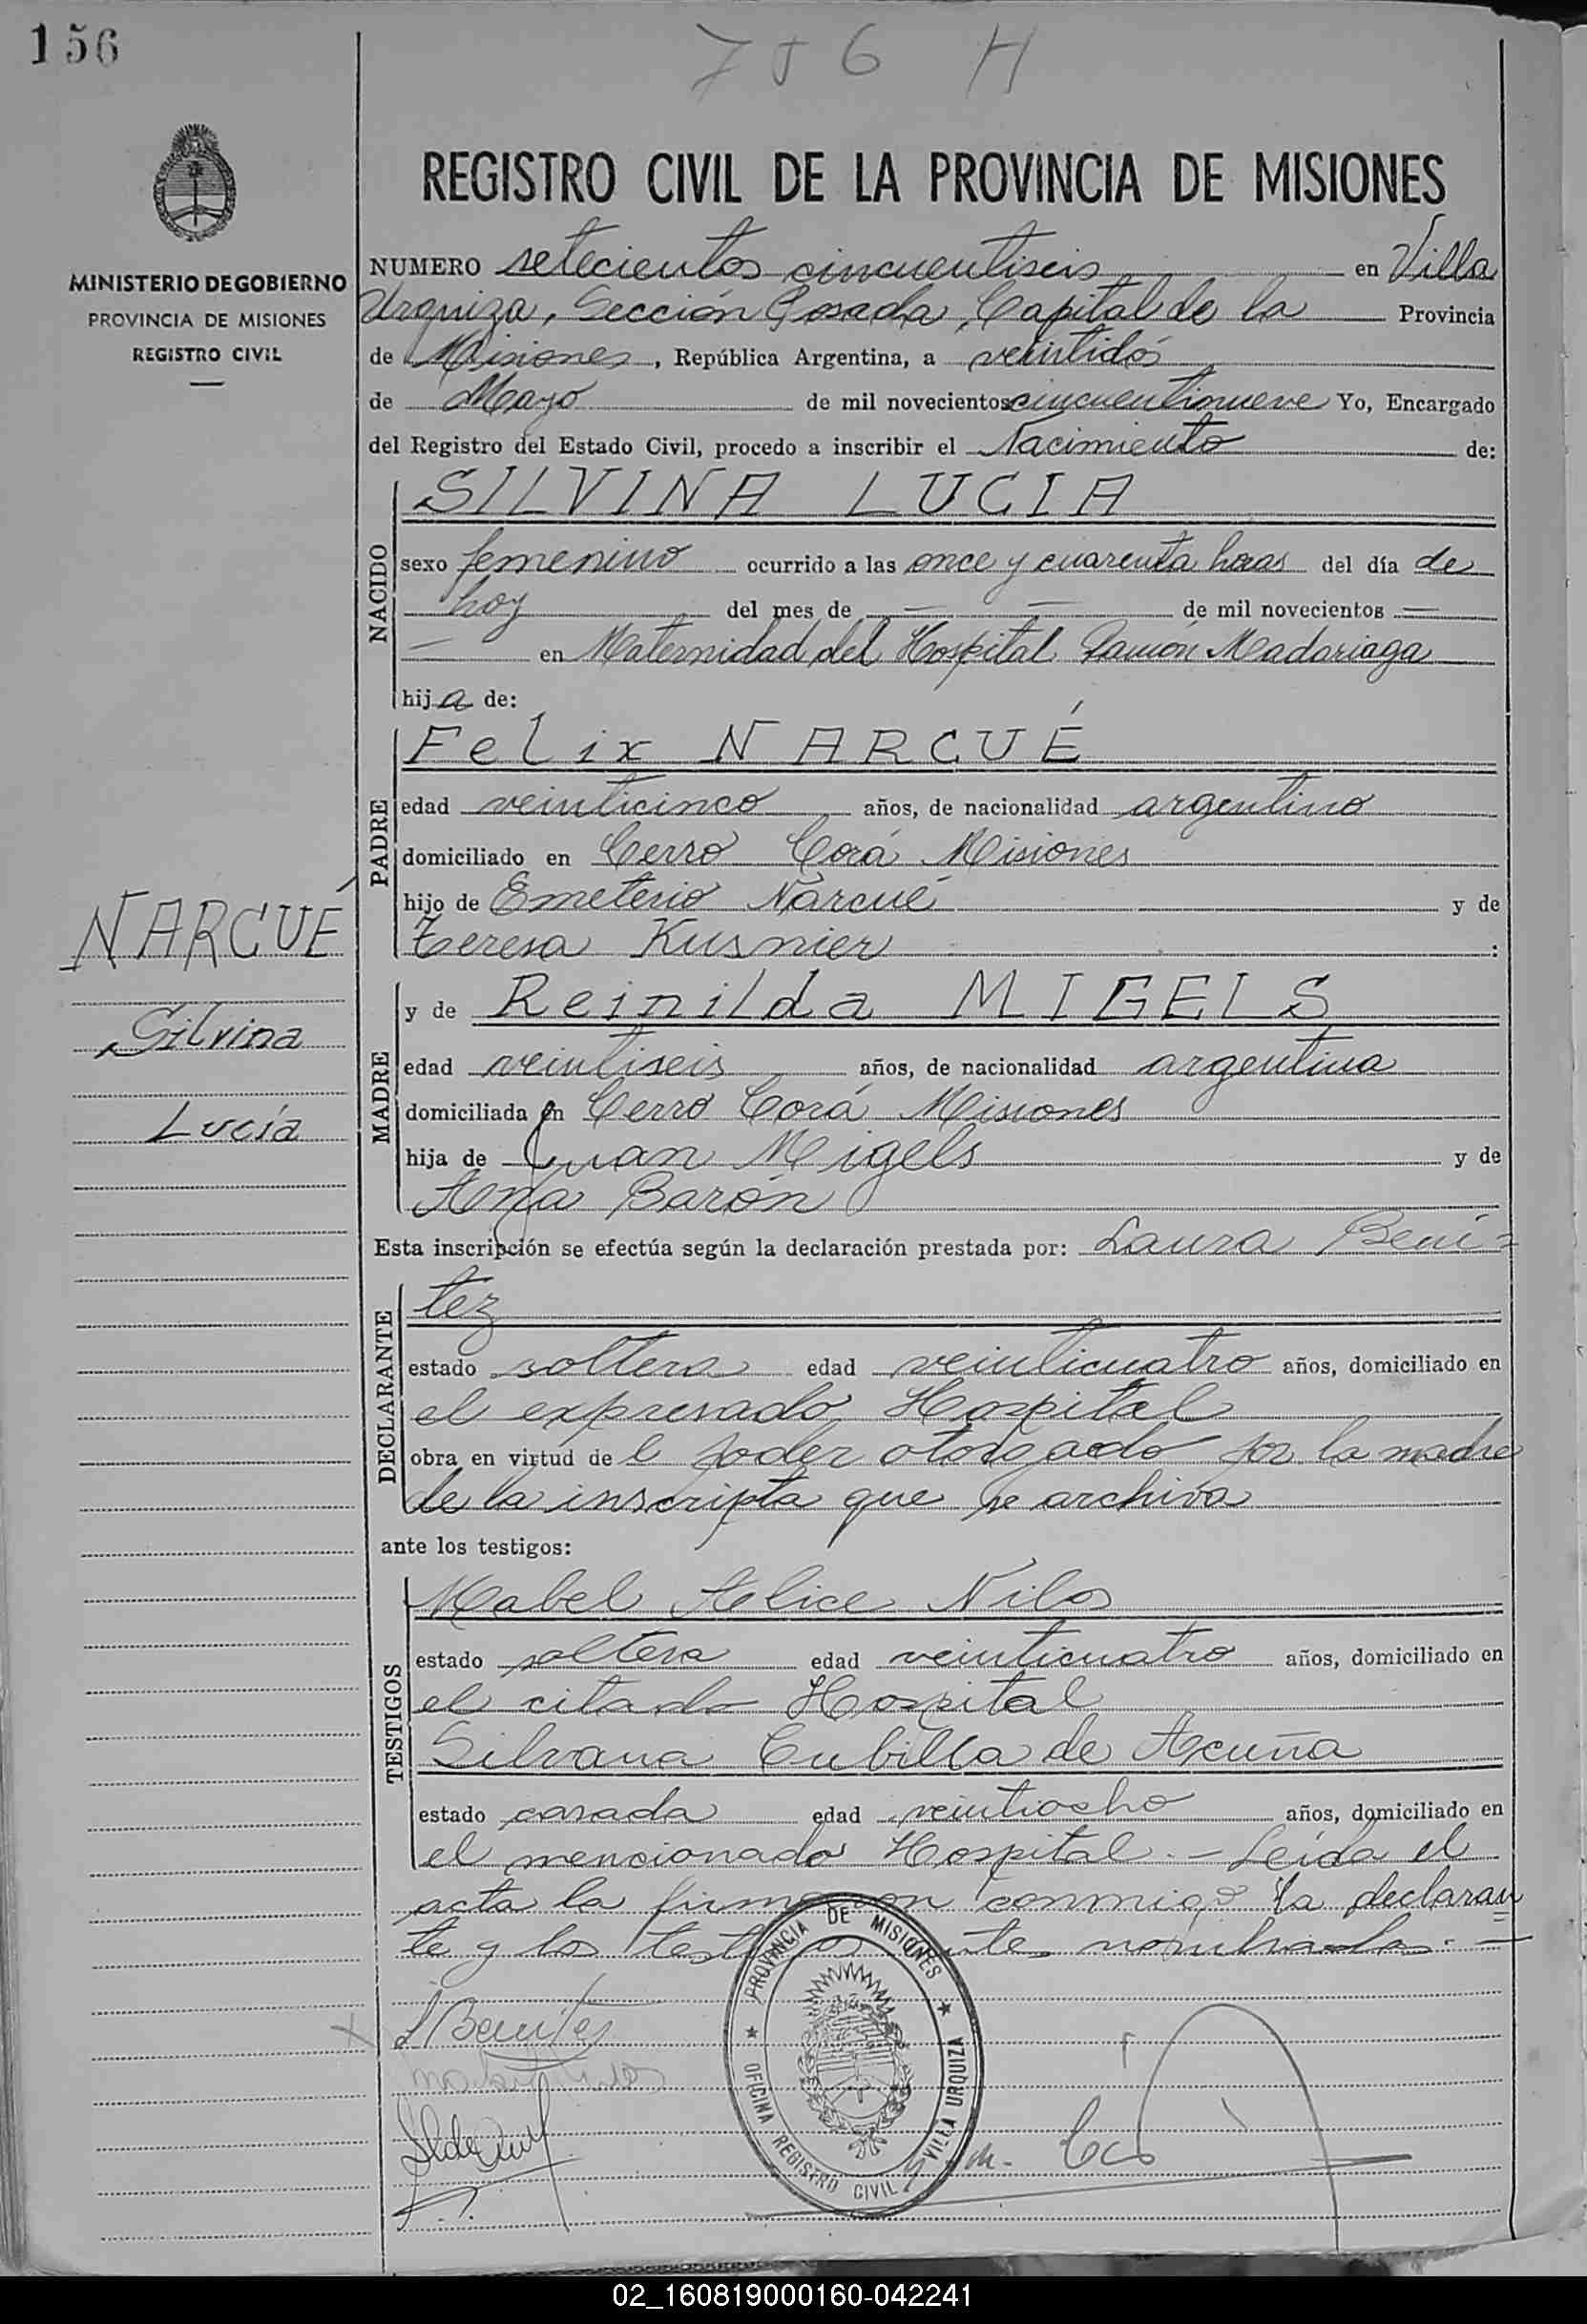 156
756 H
MINISTERIO DE GOBIERNO
PROVINCIA DE MISIONES
REGISTRO CIVIL
NARCUÉ
Silvina
Lucía
REGISTRO CIVIL DE LA PROVINCIA DE MISIONES
NUMERO setecientos cincuentiseis en Villa
Urquiza, Sección Posada, Capital de la Provincia
de Misiones, República Argentina, a veintidós
de Mayo de mil novecientos cincuentinueve Yo, Encargado
del Registro del Estado Civil, procedo a inscribir el Nacimiento de:
NACIDO
SILVINA LUCIA
sexo femenino ocurrido a las once y cuarenta horas del día de
hoy del mes de — — de mil novecientos —
— en Maternidad del Hospital Ramón Madariaga
hija de:
PADRE
Felix NARCUÉ
edad veinticinco años, de nacionalidad argentino
domiciliado en Cerro Corá Misiones
hijo de Emeterio Narcué y de
Teresa Kusnier :
MADRE
y de Reinilda MIGELS
edad veintiseis años, de nacionalidad argentina
domiciliada en Cerro Corá Misiones
hija de Juan Migels y de
Ana Barón
Esta inscripción se efectúa según la declaración prestada por: Laura Bení=
DECLARANTE
tez
estado soltera edad veinticuatro años, domiciliado en
el expresado Hospital
obra en virtud de l poder otorgado por la madre
de la inscripta que se archiva
ante los testigos:
TESTIGOS
Mabel Alice Nilos
estado soltera edad veinticuatro años, domiciliado en
el citado Hospital
Silvana Cubilla de Acuña
estado casada edad veintiocho años, domiciliado en
el mencionado Hospital.— Leída el
acta la firmaron conmigo la declaran
te y los testigos antes nombrados.—
L Benitez
PROVINCIA DE MISIONES
OFICINA REGISTRO CIVIL VILLA URQUIZA
02_160819000160-042241